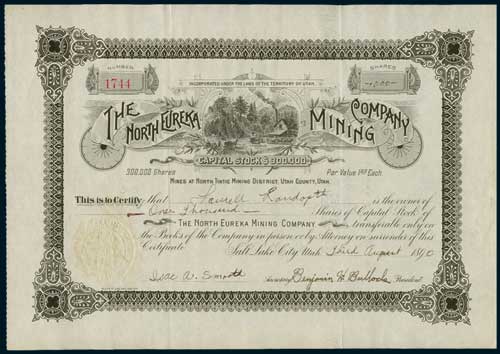 NUMBER
1744
SHARES
1000
INCORPORATED UNDER THE LAWS OF THE TERRITORY OF UTAH.
THE NORTH EUREKA MINING COMPANY
CAPITAL STOCK $300,000
300,000 Shares
Par Value $1.00 Each.
MINES AT NORTH TINTIC MINING DISTRICT, UTAH COUNTY, UTAH.
This is to Certify that Randolph is the owner of
One Thousand Shares of Capital Stock of
THE NORTH EUREKA MINING COMPANY transferable only on
the Books of the Company in person or by Attorney on surrender of this
Certificate. Salt Lake City Utah, Third August 1890
Isac A. Smooth Secretary Benjamin H Bullock President